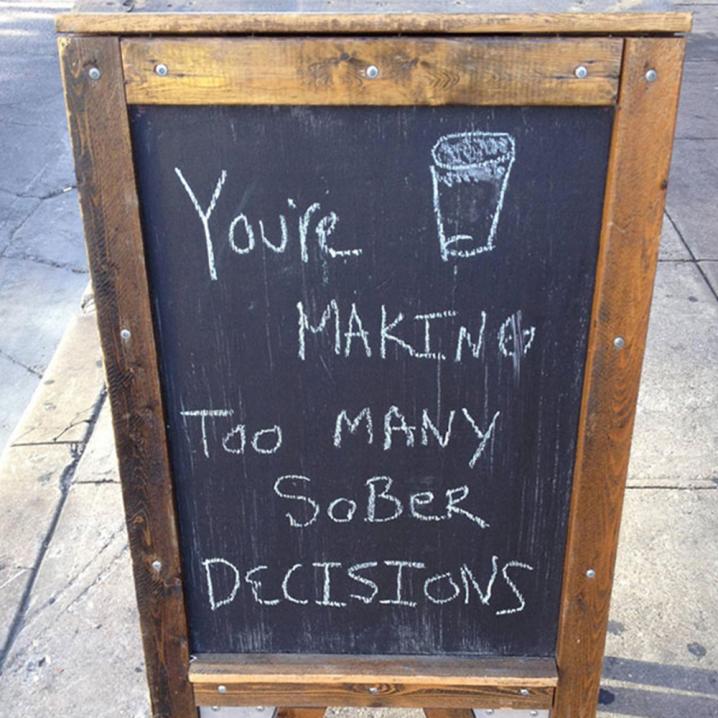 You're
MAKING
Too MANY
SoBeR
DECISIONS